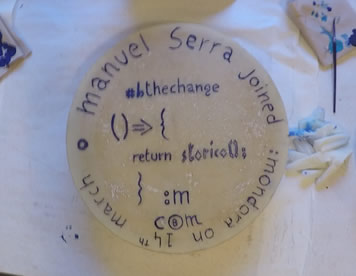 manuel Serra joined :mondora on 14th march
#bthechange
() => {
return storico();
}
:m
com